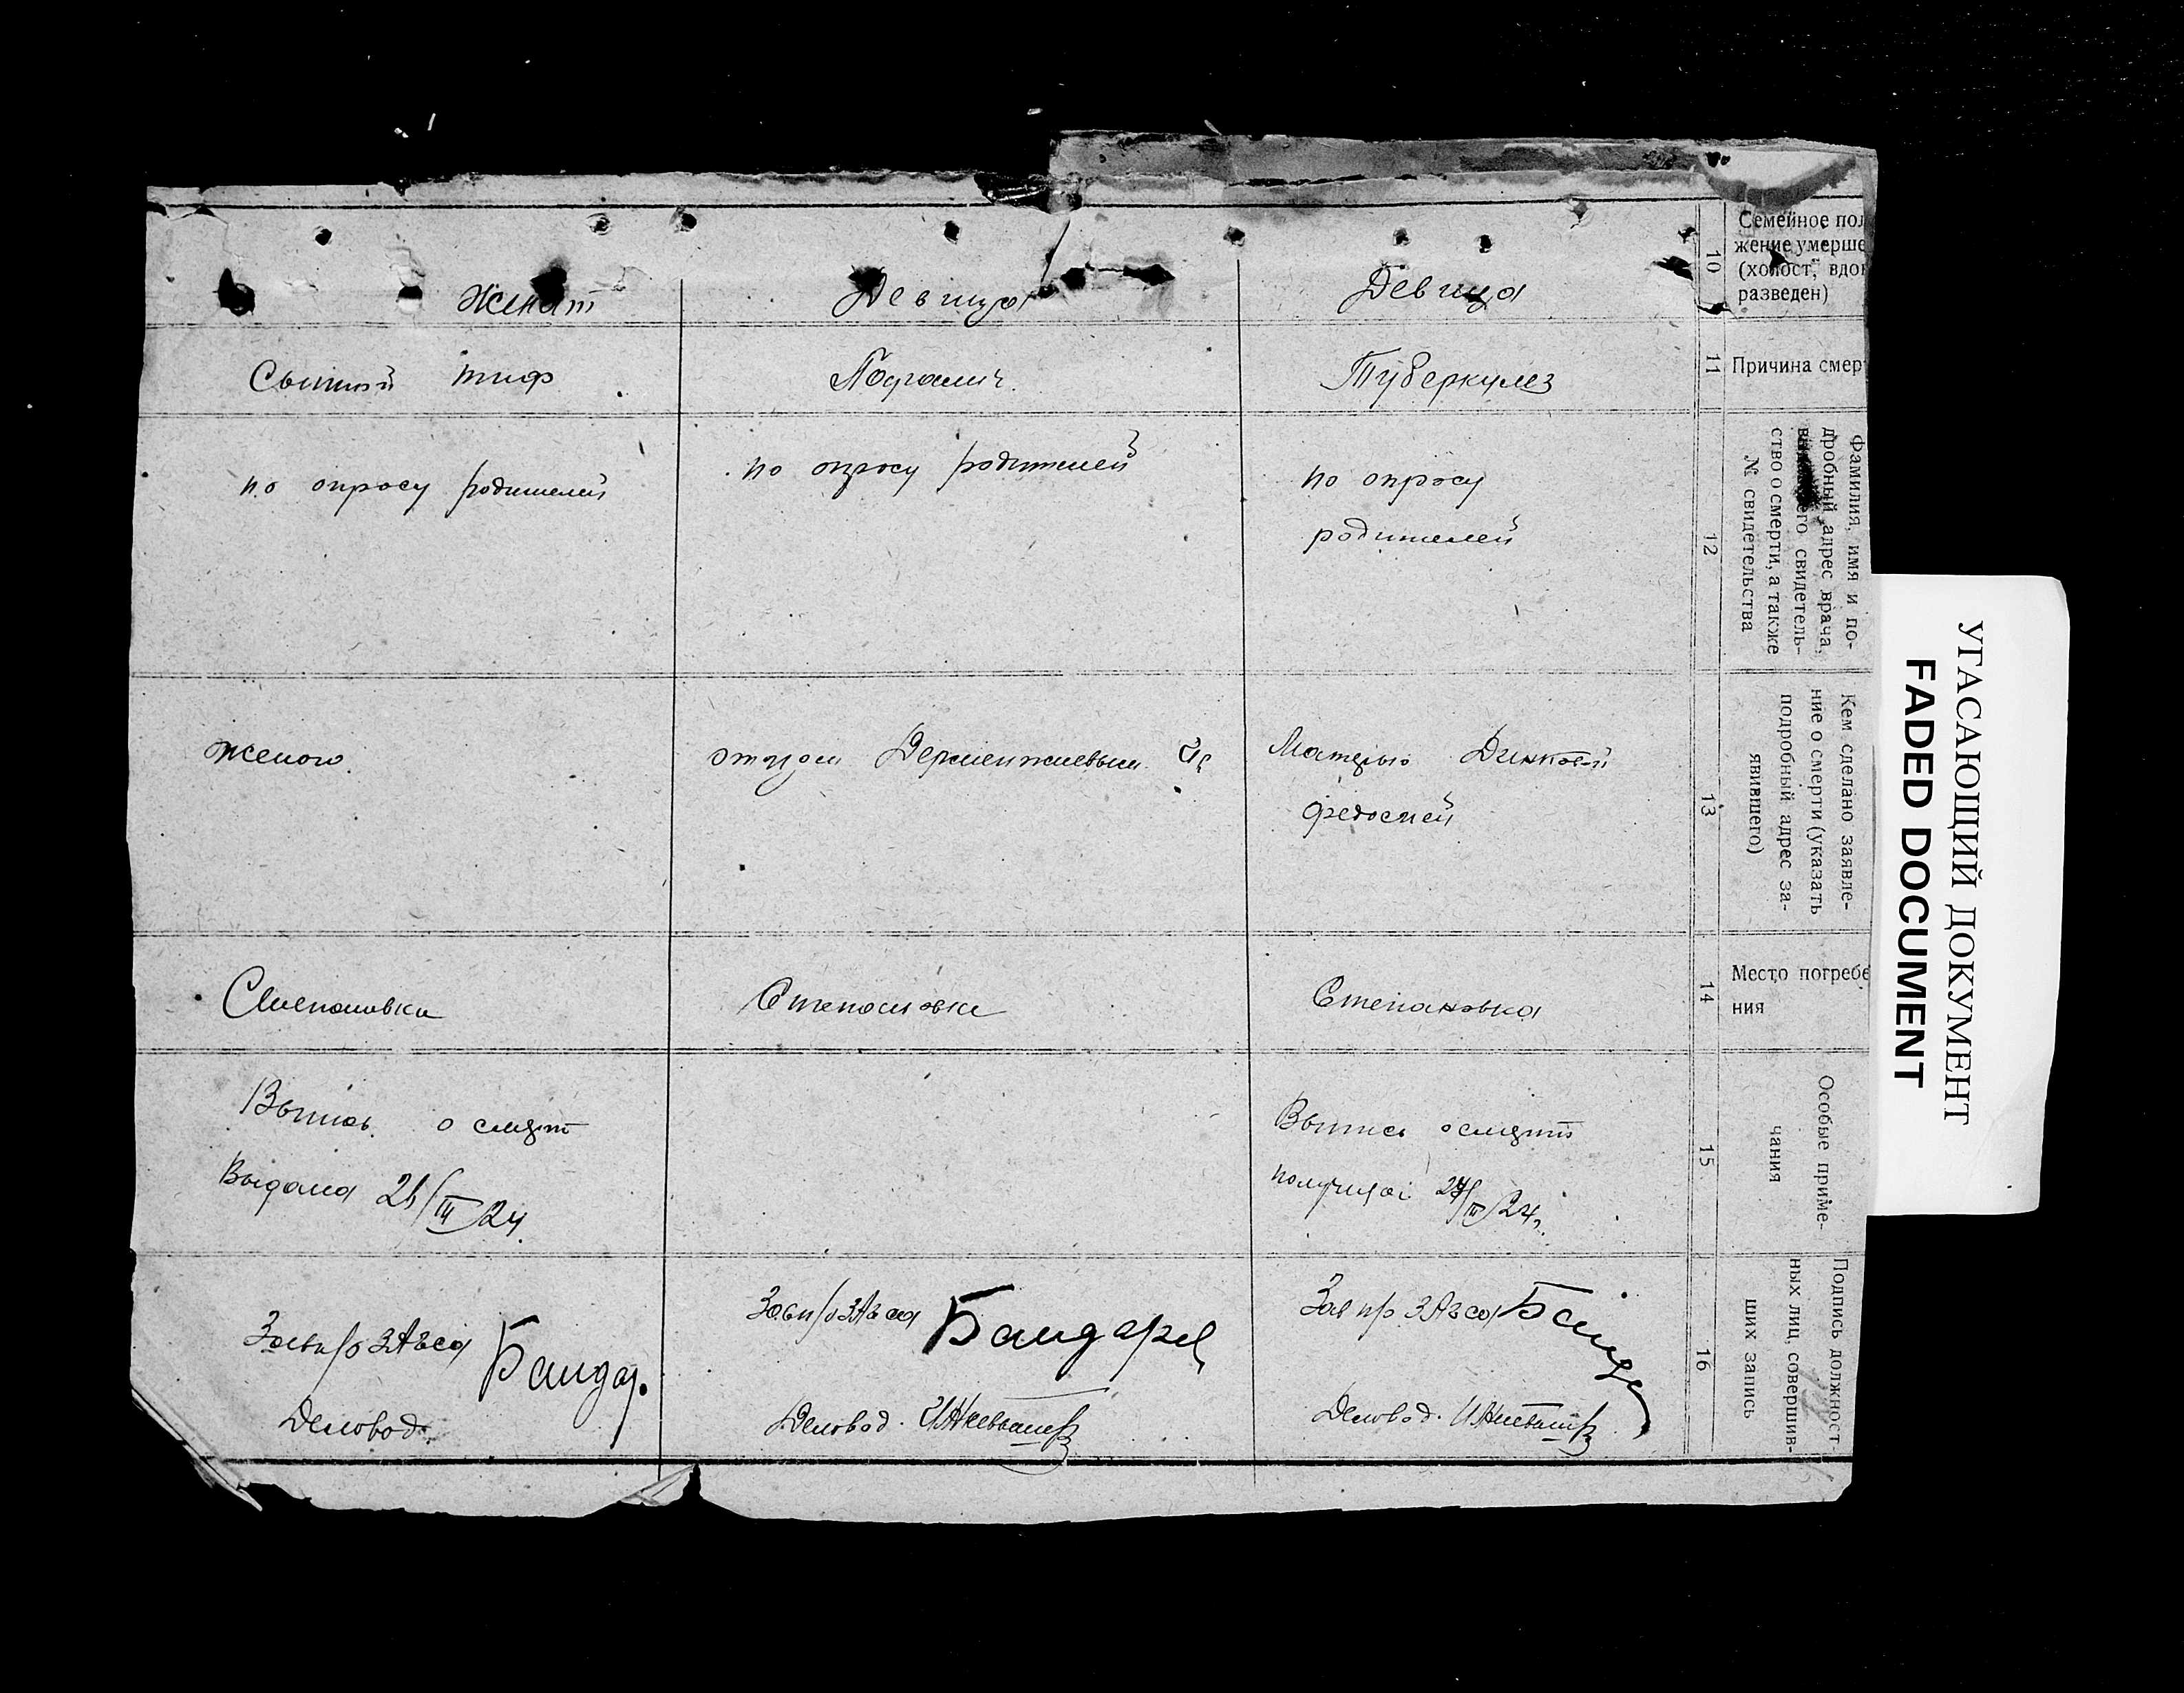 Женат
Девица
Девица
10
Семейное пол
жение умерше
(холост, вдов
разведен)
Сыпной тиф
Туберкулез
11
Причина смер
по опросу родителей
по опросу родителей
по опросу
родителей
12
Фамилия, имя и по-
дробный адрес врача,
его свидетель-
ство о смерти, а также
№ свидетельства
женою.
отцом Дерменжиевым
Матерью Динковой
Федосией
13
Кем сделано заявле-
ние о смерти (указать
подробный адрес за-
явившего)
Степановка
Степановка
Степановка
14
Место погребе
ния
Выпись о смерт
Выдана 21/III/24.
Выпись о смерти
получила 24/III/24.
15
Особые приме-
чания
Зав п/о ЗАгса Бандар.
Деловод.
Зав п/о ЗАгса Бандарев
Деловод.
Зав п/о ЗАгса
Деловод.
16
Подпись должност
ных лиц, совершив-
ших запись
УГАСАЮЩИЙ ДОКУМЕНТ
FADED DOCUMENT